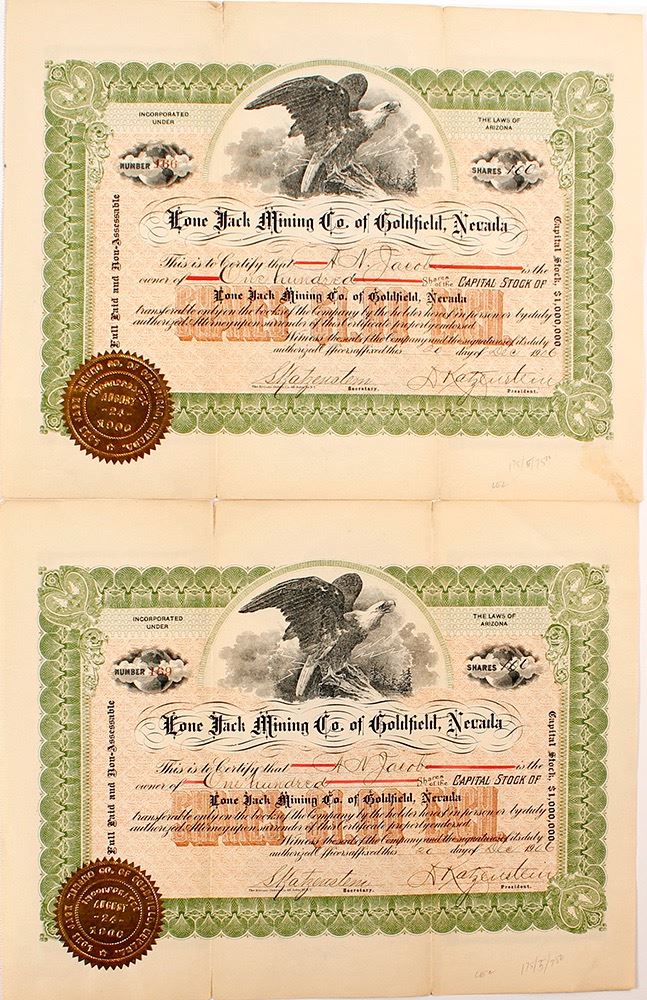 INCORPORATED
UNDER
THE LAWS OF
ARIZONA
NUMBER 166
SHARES 100
Lone Jack Mining Co. of Goldfield, Nevada
Full Paid and Non-Assessable
Capital Stock, $1,000,000
This is to Certify that A N Jacob is the
owner of One hundred Shares of the CAPITAL STOCK OF
Lone Jack Mining Co. of Goldfield, Nevada
transferable only on the book of the Company by the holder hereof in person or by duly
authorized Attorney upon surrender of this certificate properly endorsed
Witness the seal of the Company and the signatures of its duly
authorized officers affixed this 20 day of Dec 1906
S Katzenstein
Secretary.
A Katzenstein
President.
LONE JACK MINING CO. OF GOLDFIELD, NEVADA
INCORPORATED
AUGUST
-24-
1906
INCORPORATED
UNDER
THE LAWS OF
ARIZONA
NUMBER 169
SHARES 100
Lone Jack Mining Co. of Goldfield, Nevada
Full Paid and Non-Assessable
Capital Stock, $1,000,000
This is to Certify that A N Jacob is the
owner of One hundred Shares of the CAPITAL STOCK OF
Lone Jack Mining Co. of Goldfield, Nevada
transferable only on the book of the Company by the holder hereof in person or by duly
authorized Attorney upon surrender of this certificate properly endorsed
Witness the seal of the Company and the signatures of its duly
authorized officers affixed this 20 day of Dec 1906
S Katzenstein
Secretary.
A Katzenstein
President.
LONE JACK MINING CO. OF GOLDFIELD, NEVADA
INCORPORATED
AUGUST
-24-
1906